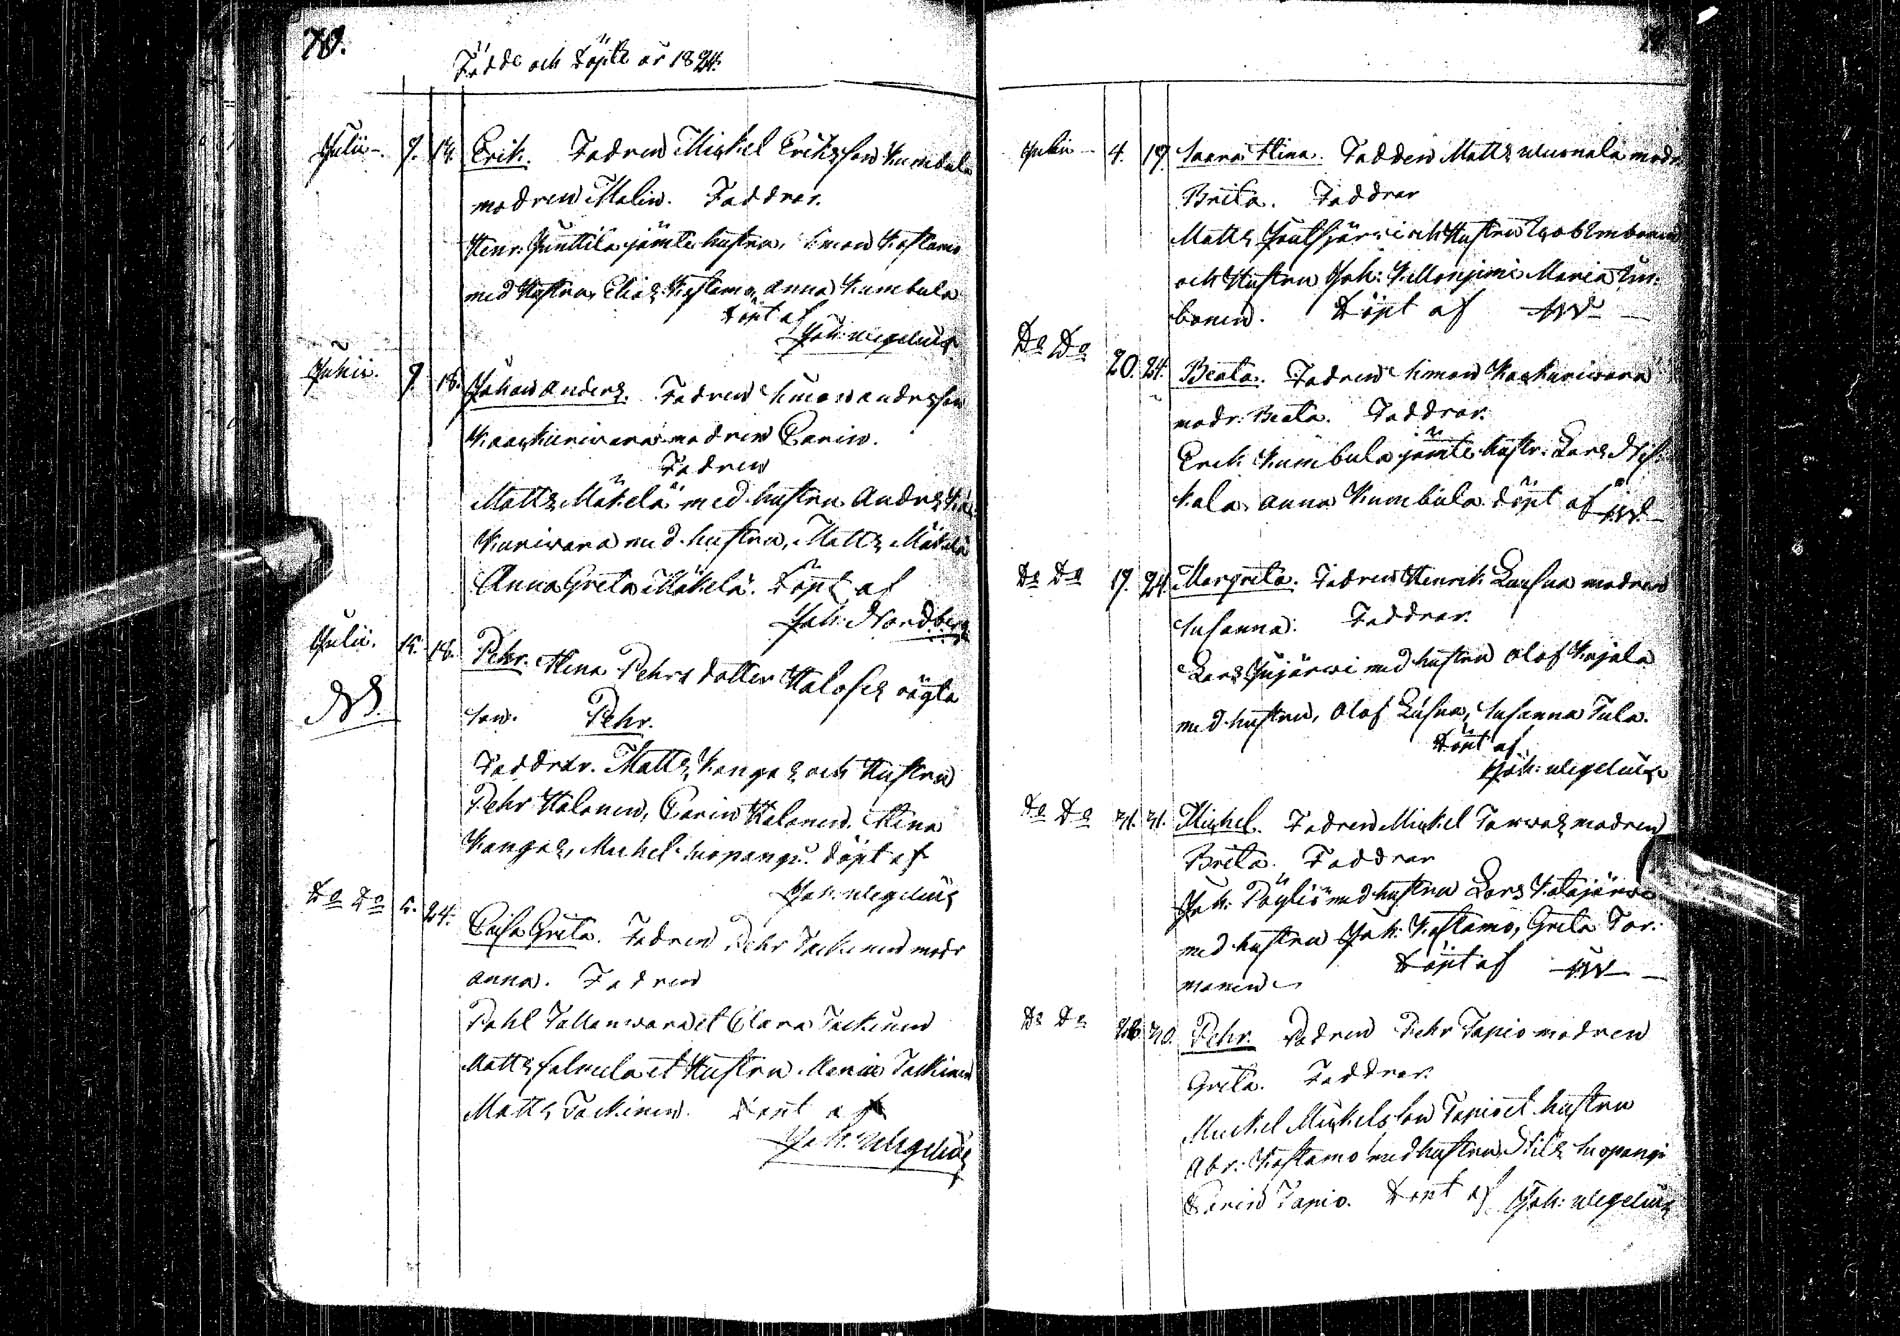 70.
Födde och Döpte år 1824.
Julii. 9. 18. Erik. Fadren Mickel Eriksson Kumbula
modren Malin. Faddrar.
Henr. Junttila jämte hustru, Simon Kostamo
med Hustru, Elias Kostamo, Anna Kumbula
Döpt af
Joh: Wegelius
Julii. 9. 18. Johan Anders. Fadren Simon Andersson
modren Carin.
Fadren
Matts Mäkelä med hustru Anders
Kurivara med hustru, Matts Mäkelä
Anna Greta Mäkelä. Döpt af
Joh: Nordberg
Julii. 15. 18. Pehr. Stina Pehrs dotter Halosens oägta
NB.
Son. Pehr.
Faddrar. Matts Kangas och Hustru
Pehr Halonen, Carin Halonen. Stina
Kangas, Michel Luopangi. Döpt af
Joh: Wegelius
Do Do 5. 24. Caisa Greta. Fadren Pehr Tackinen modr
Anna. Fadren
Påhl Tallavaara et Clara Tackinen
Matts et Hustru Maria Tackinen
Matts Tackinen. Döpt af
Joh: Wegelius
Julii 4. 19. Saara Stina. Fadren Matts modr.
Brita. Faddrar
Matts och Hustru
och Hustru Joh: Maria Im-
bonen. Döpt af JW
Do Do 20. 24. Beata. Fadren Simon
modr: Beata. Faddrar.
Erik Kumbula jämte hustr. Lars
kala, Anna Kumbula döpt af JW
Do Do 19. 24. Margreta. Fadren Henrik Luusua modren
Susanna. Faddrar.
Lars Jujärvi med hustru Olof Kojola
med hustru, Olof Luusua, Susanna Tula.
Döpt af
Joh: Wegelius
Do Do 31. 31. Michel. Fadren Mickel Tarvas modren
Brita. Faddrar
Joh: Pöyliö med hustru Lars Ketojärvi
med hustru Joh: Kostamo, Greta Tor-
manen. Döpt af JW
Do Do 30. Pehr. Fadren Pehr Tapio modren
Greta. Faddrar.
Mickel Mickelsson Tapio et hustru
Abr: Kostamo med hustru, Nils Luopangi
Carin Tapio. Döpt af Joh: Wegelius